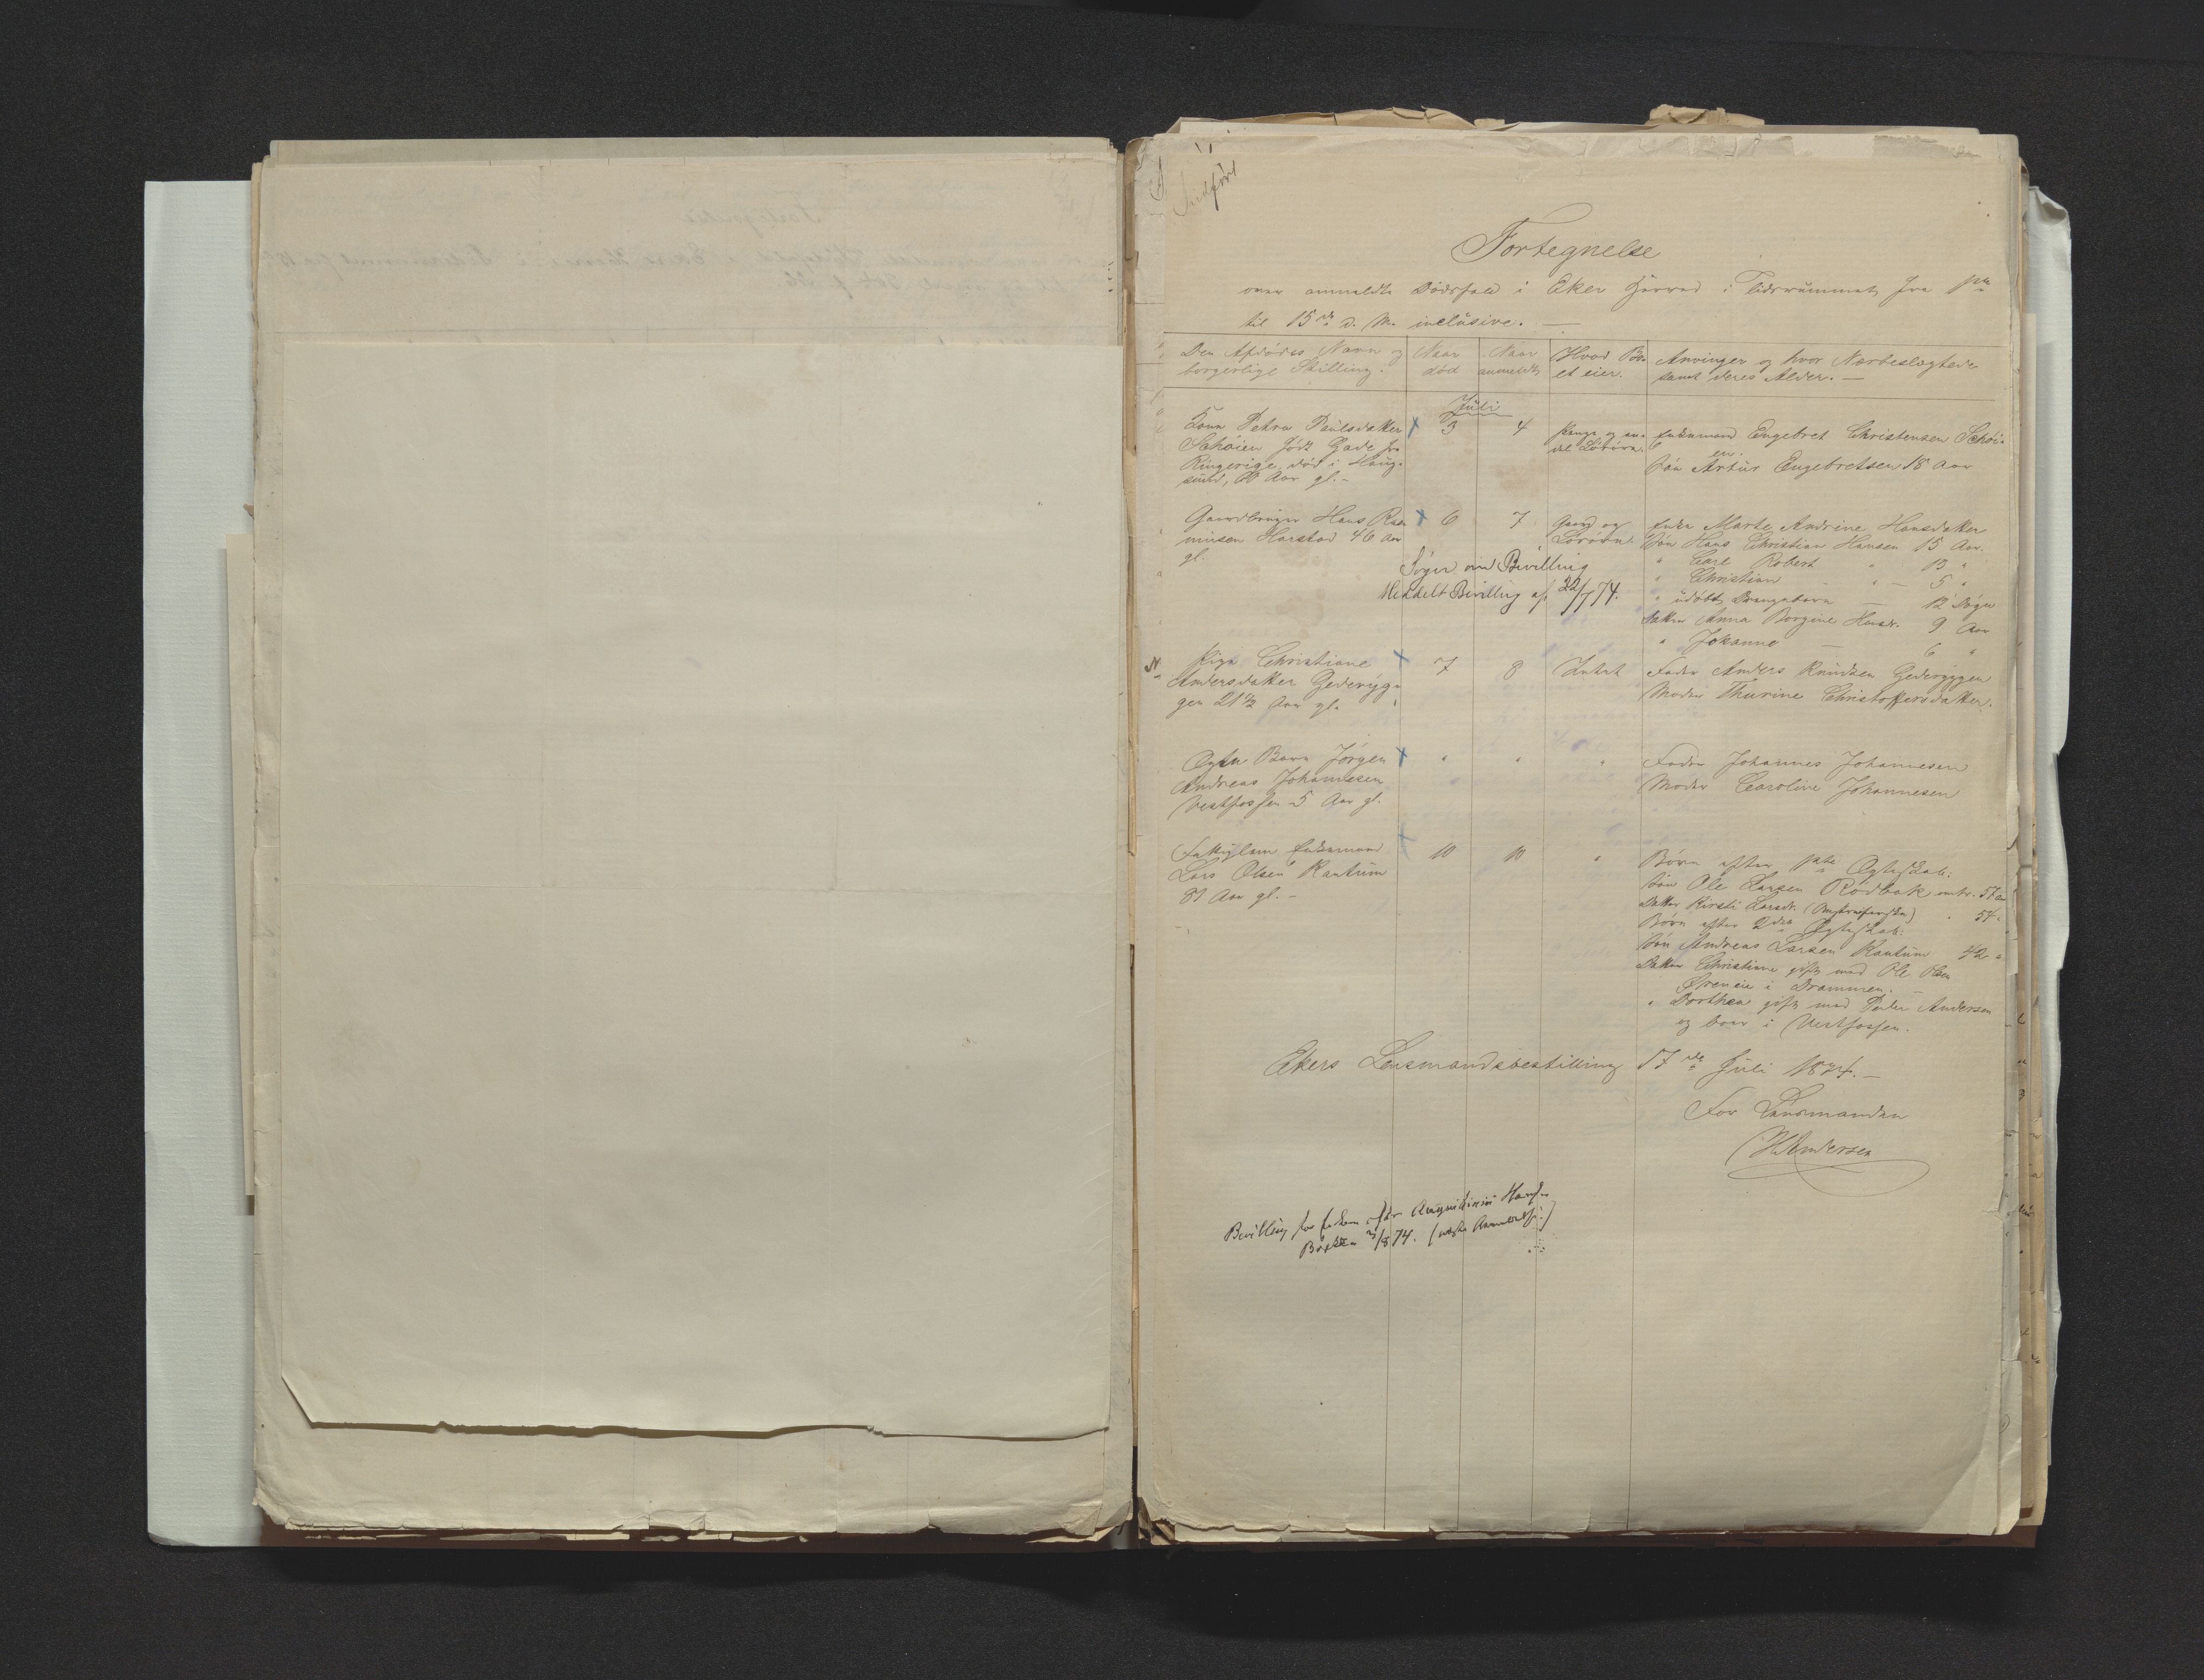 Indført
Fortegnelse
over anmeldte Dødsfald i Eker Herred i Tidsrummet fra 1ste
til 15de d. M. inclusive. —
Den Afdødes Navn og
borgerlige Stilling.
Naar
død
Naar
anmeldt
Hvad Bo-
et eier.
Arvinger og hvor Nærbeslægtede
samt deres Alder. —
Juli
Kone Petra Paulsdatter
Schøien født Gade fra
Ringerige, død i Houg-
sund, 60 Aar gl. –
3
4
Penge og en-
del Løsøre.
Enkemand Engebret Christensen Schøi-
en.
Søn Artur Engebretsen 18 Aar
Gaardbruger Hans Ras-
musen Harstad 46 Aar
gl.
6
7
Gaard og
Løsøre.
Enke Marte Andrine Hansdatter
Søn Hans Christian Hansen 15 Aar.
" Carl Robert " 13 "
" Christian — " — 5 "
" udøbt Drengebarn — 12 Døgn
Datter Anna Borgine Hansd. 9 Aar
" Johanne — 6 "
Søger om Bevilling
Meddelt Bevilling af 22/7 74.
N.
Pige Christiane
Andersdatter Gederyg-
gen 21 1/2 Aar gl.
7
8
Intet
Fader Anders Knudsen Gederyggen
Moder Thurine Christoffersdatter.
Ægte Barn Jørgen
Andreas Johannesen
Vestfossen 5 Aar gl.
"
"
"
Fader Johannes Johannesen
Moder Caroline Johannesen
Fattiglem Enkemand
Lars Olsen Kantum
81 Aar gl. –
10
10
"
Børn efter 1ste Ægteskab:
Søn Ole Larsen Rødbak omtr. 57 Aar
Datter Kirsti Larsdr. " 54 "
Børn efter 2det Ægteskab:
Søn Andreas Larsen Kantum 42 "
Datter Christine gift med Ole Olsen
Øreneie i Drammen. —
" Dorthea gift med Peder Andersen
og boer i Vestfossen.
Ekers Lensmandsbestilling 17de Juli 1874. —
For Lensmanden
H. Andersen
Bevilling for Enken efter Hans
/8 74.